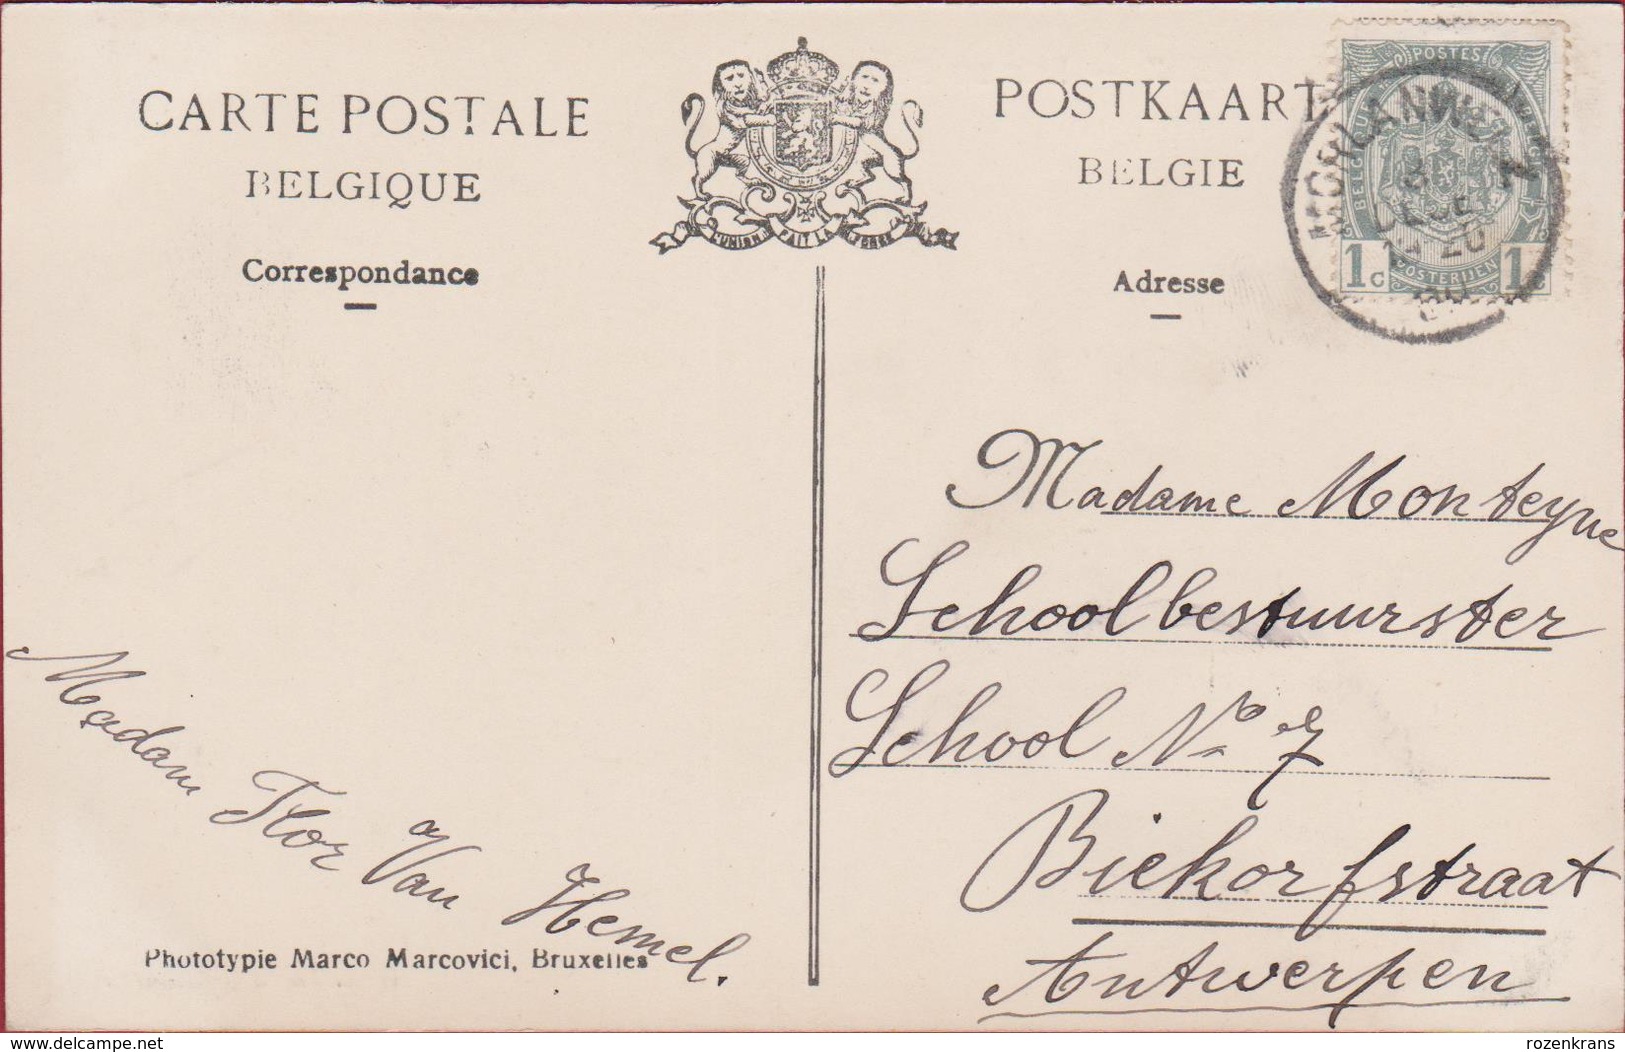 CARTE POSTALE
BELGIQUE
Correspondance
L'UNION FAIT LA FORCE
POSTKAART
BELGIE
Adresse
POSTES
BELGIQUE
1c POSTERIJEN 1c
MORLANWELZ
Madame Monteyne
Schoolbestuurster
School No 7
Biekorfstraat
Antwerpen
Madam Flor Van Hemel.
Phototypie Marco Marcovici, Bruxelles
www.delcampe.net
rozenkrans